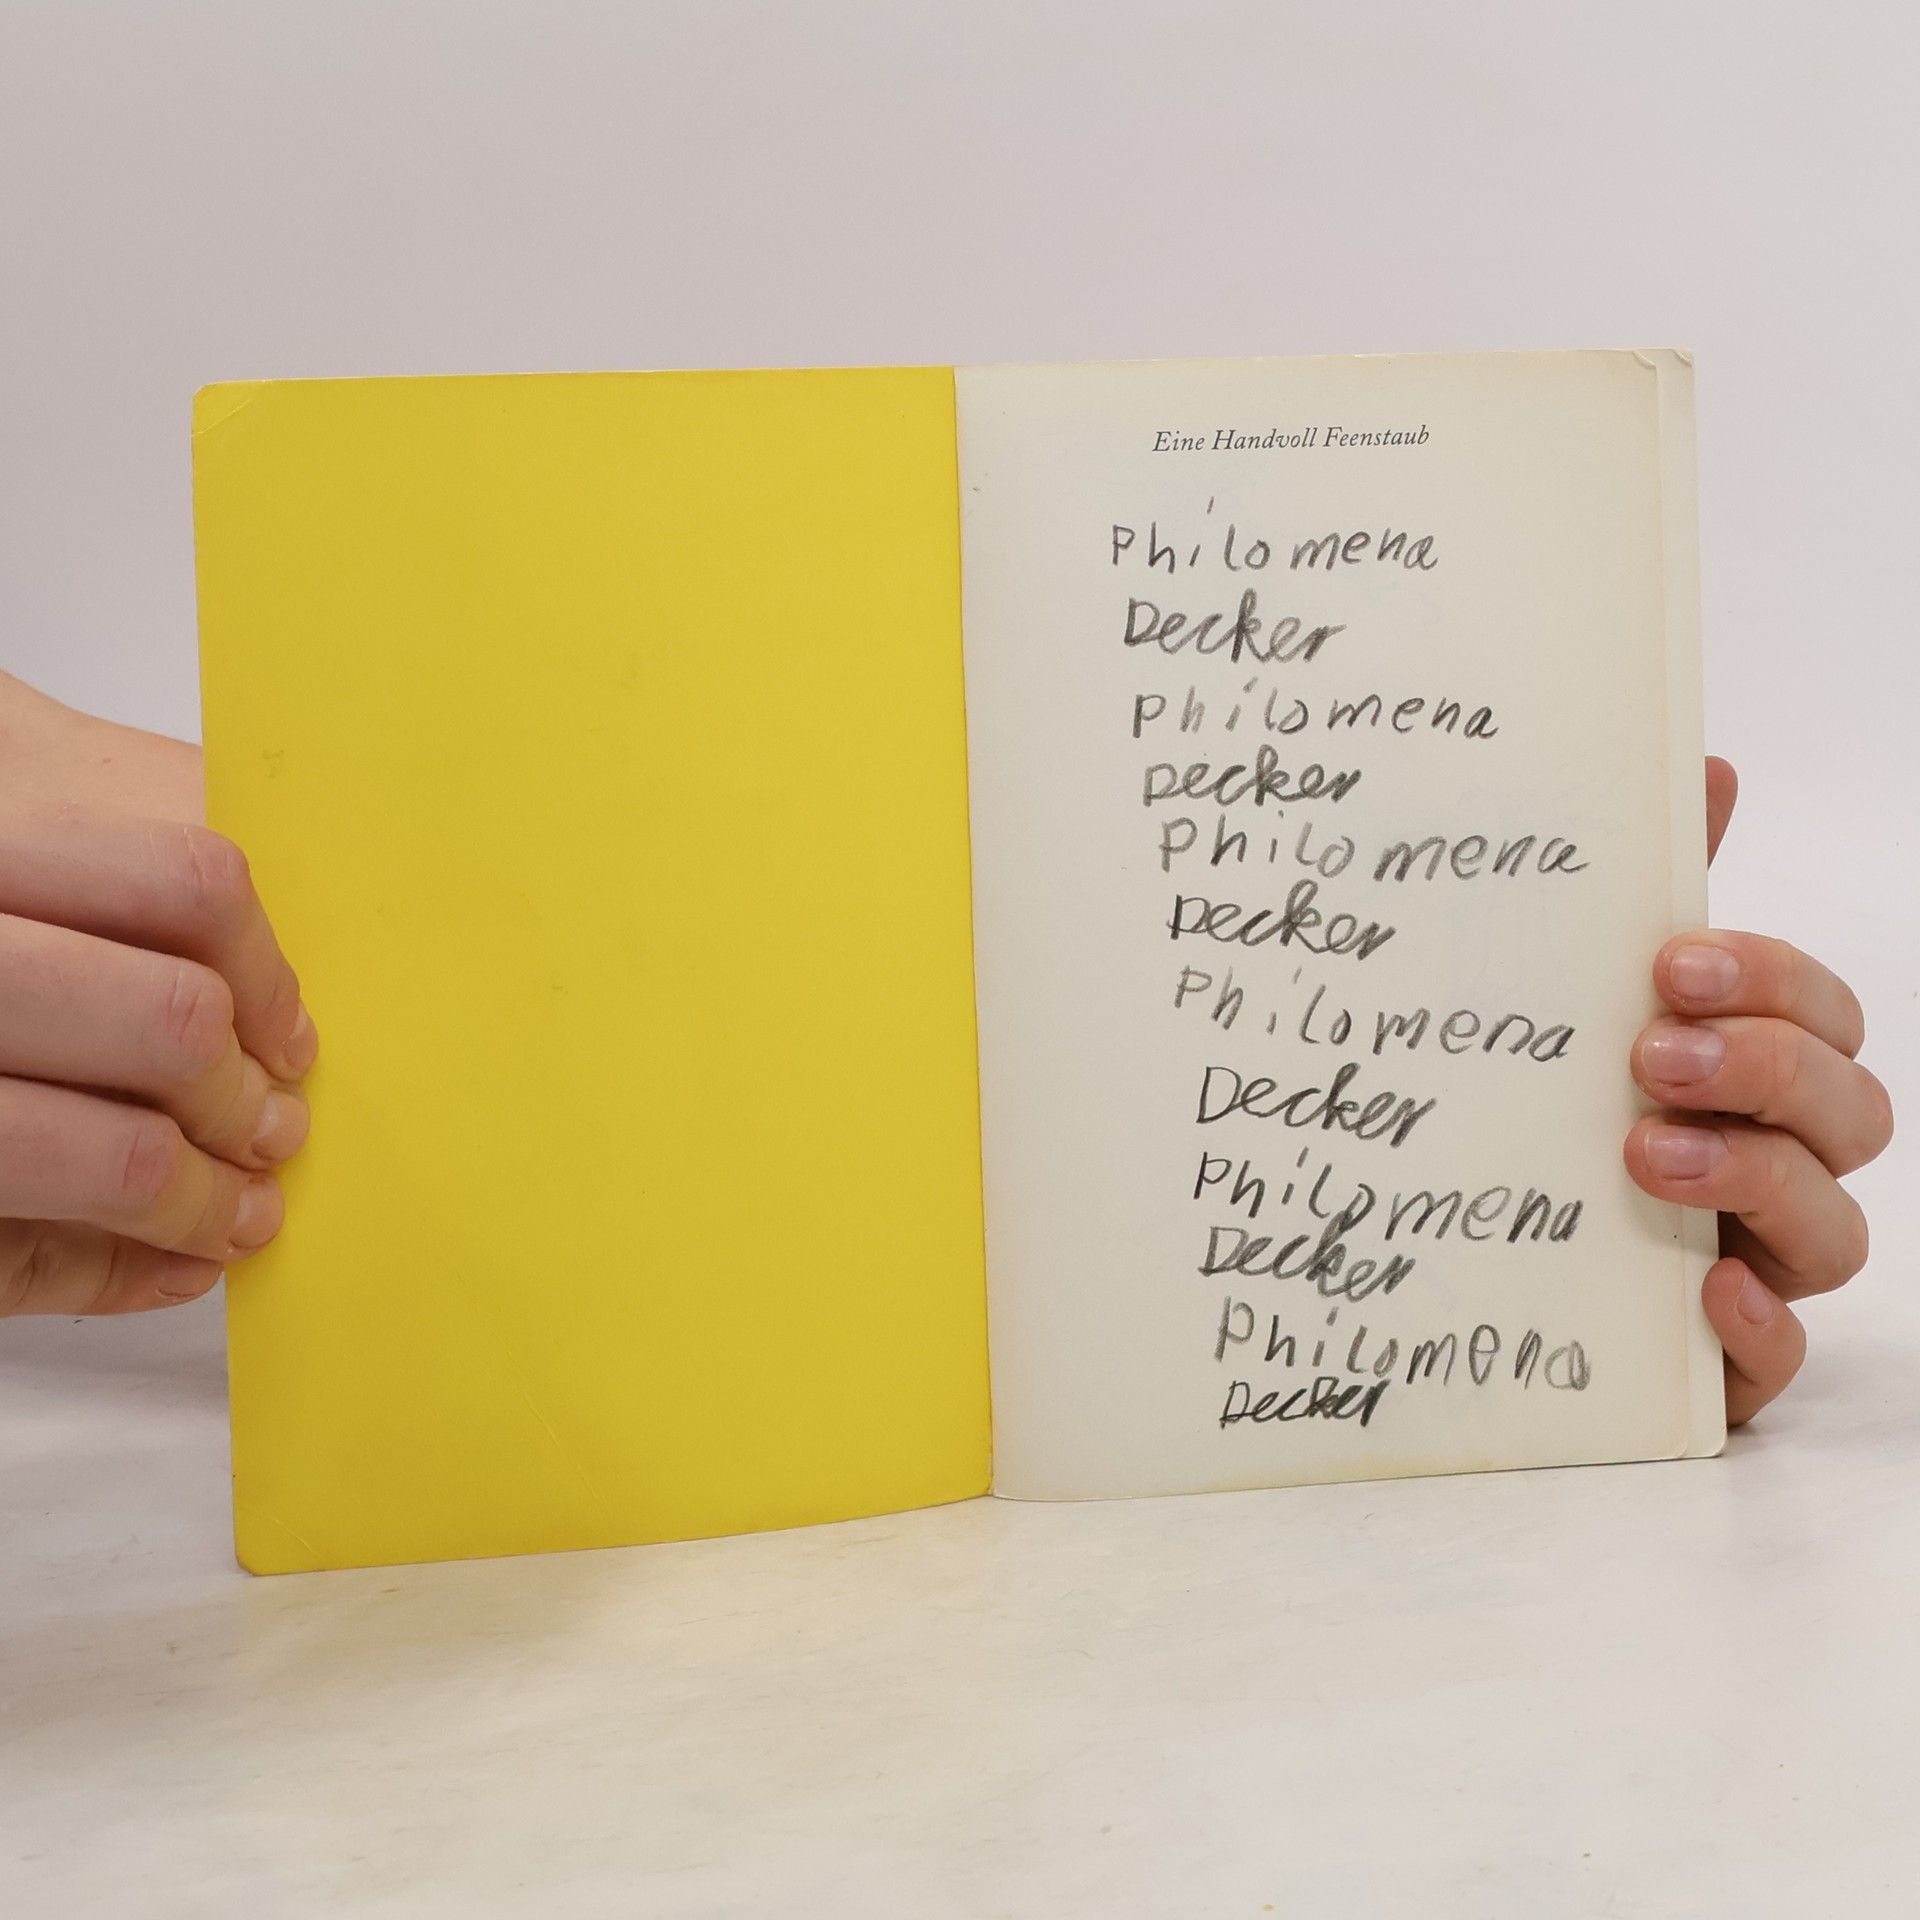 Eine Handvoll Feenstaub
Philomena
Decker
Philomena
Decker
Philomena
Decker
Philomena
Decker
Philomena
Decker
Philomena
Decker